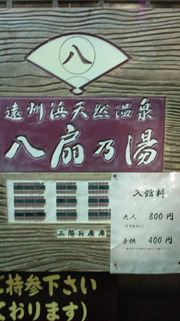 八
遠州浜天然温泉
八扇乃湯
入館料
大人 800円
小供 400円
三階お座席
ご持参下さい
ております)